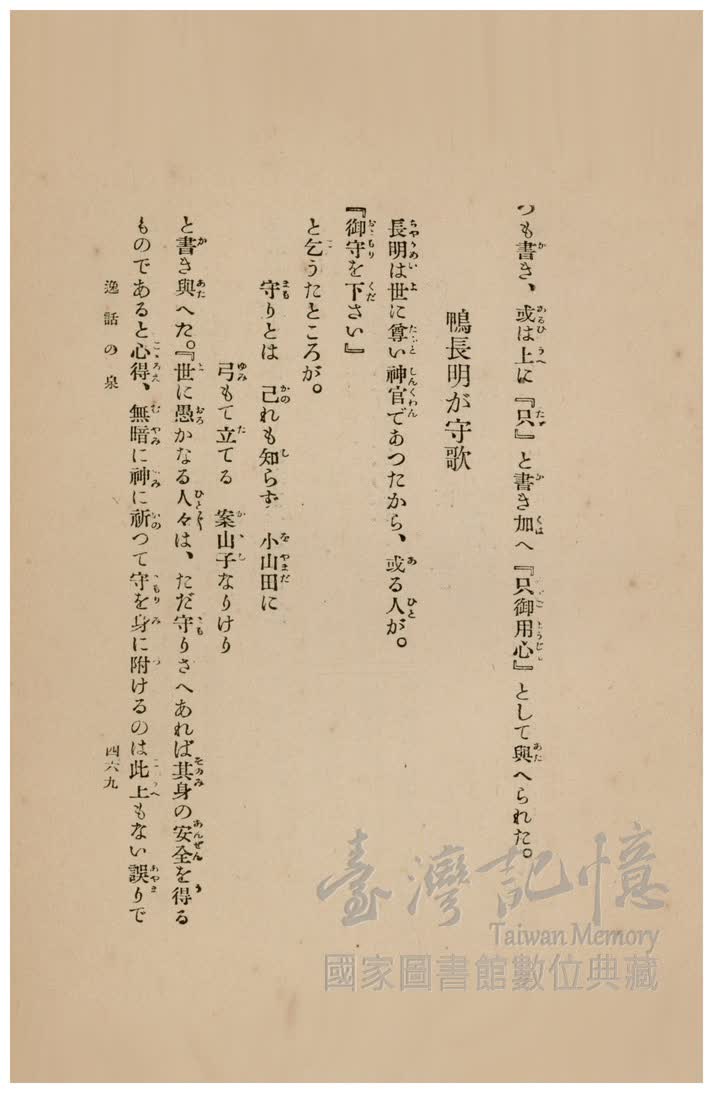 つも書き、或は上に『只』と書き加へ『只御用心』として與へられた。
鴨長明が守歌
長明は世に尊い神官であつたから、或る人が。
『御守を下さい』
と乞うたところが。
守りとは　己れも知らず　小山田に
弓もて立てる　案山子なりけり
と書き與へた。『世に愚かなる人々は、ただ守りさへあれば其身の安全を得る
ものであると心得、無暗に神に祈つて守を身に附けるのは此上もない誤りで
逸話の泉
四六九
臺灣記憶
Taiwan Memory
國家圖書館數位典藏